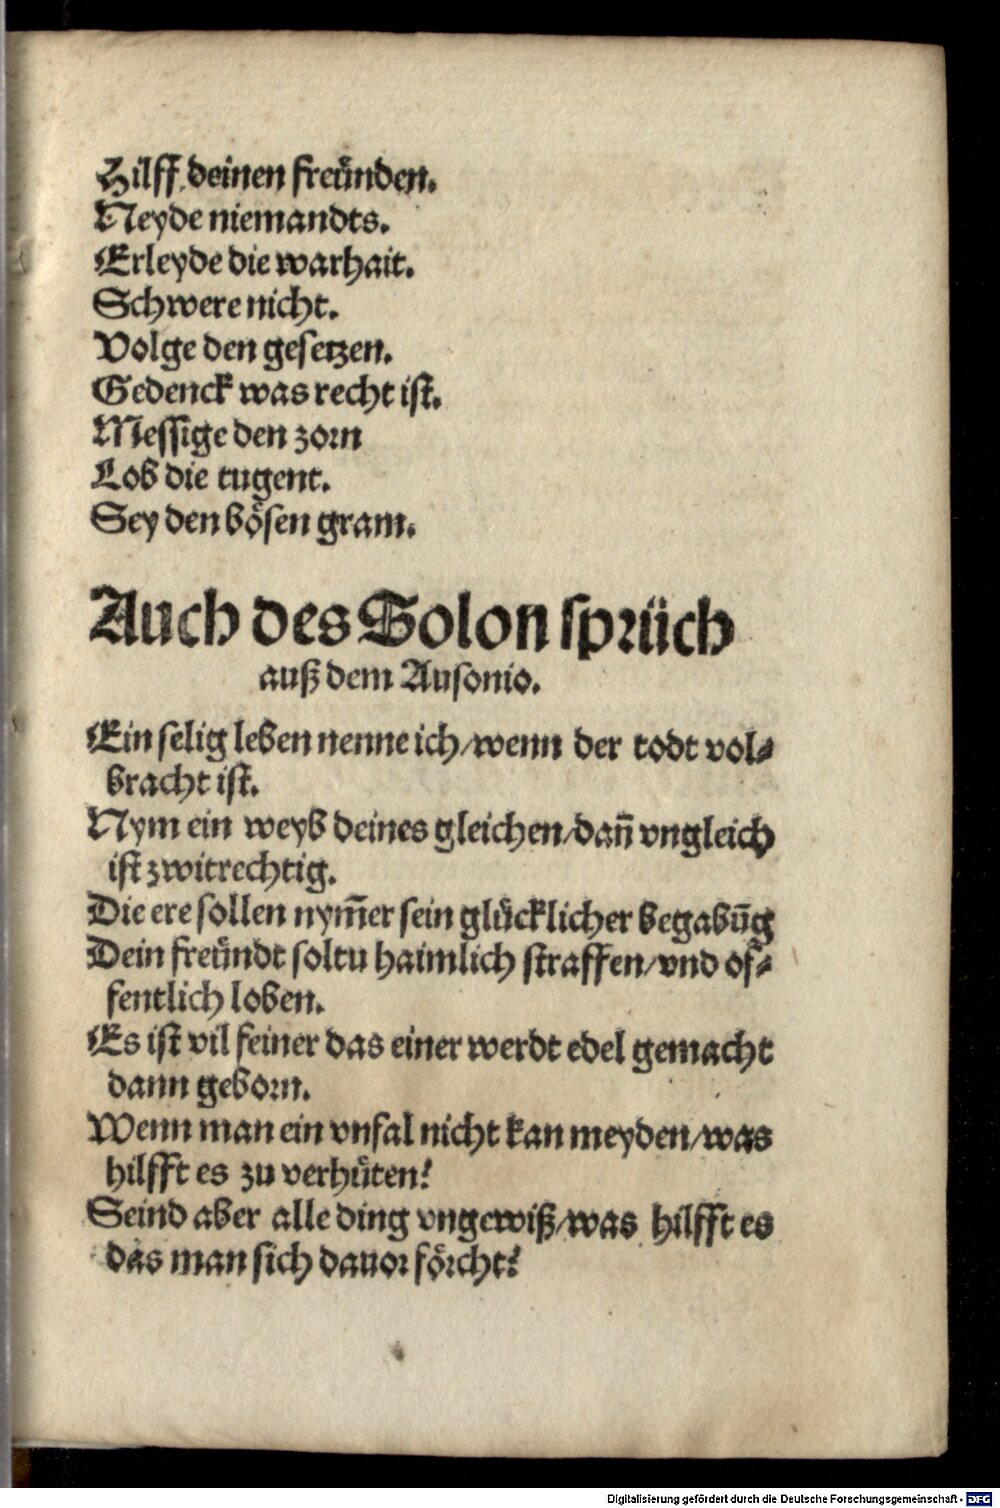 Hilff deinen freünden.
Neyde niemandts.
Erleyde die warhait.
Schwere nicht.
Volge den gesetzen.
Gedenck was recht ist.
Messige den zorn
Lob die tugent.
Sey den bösen gram.
Auch des Solon sprüch
auß dem Ausonio.
Ein selig leben nenne ich/wenn der todt vol⸗
bracht ist.
Nym ein weyb deines gleichen/dañ vngleich
ist zwitrechtig.
Die ere sollen nym̃er sein glücklicher begabũg
Dein freündt soltu haimlich straffen/vnd of⸗
fentlich loben.
Es ist vil feiner das einer werdt edel gemacht
dann geborn.
Wenn man ein vnfal nicht kan meyden/was
hilfft es zu verhüten?
Seind aber alle ding vngewiß/was hilfft es
das man sich dauor förcht?
Digitalisierung gefördert durch die Deutsche Forschungsgemeinschaft - DFG